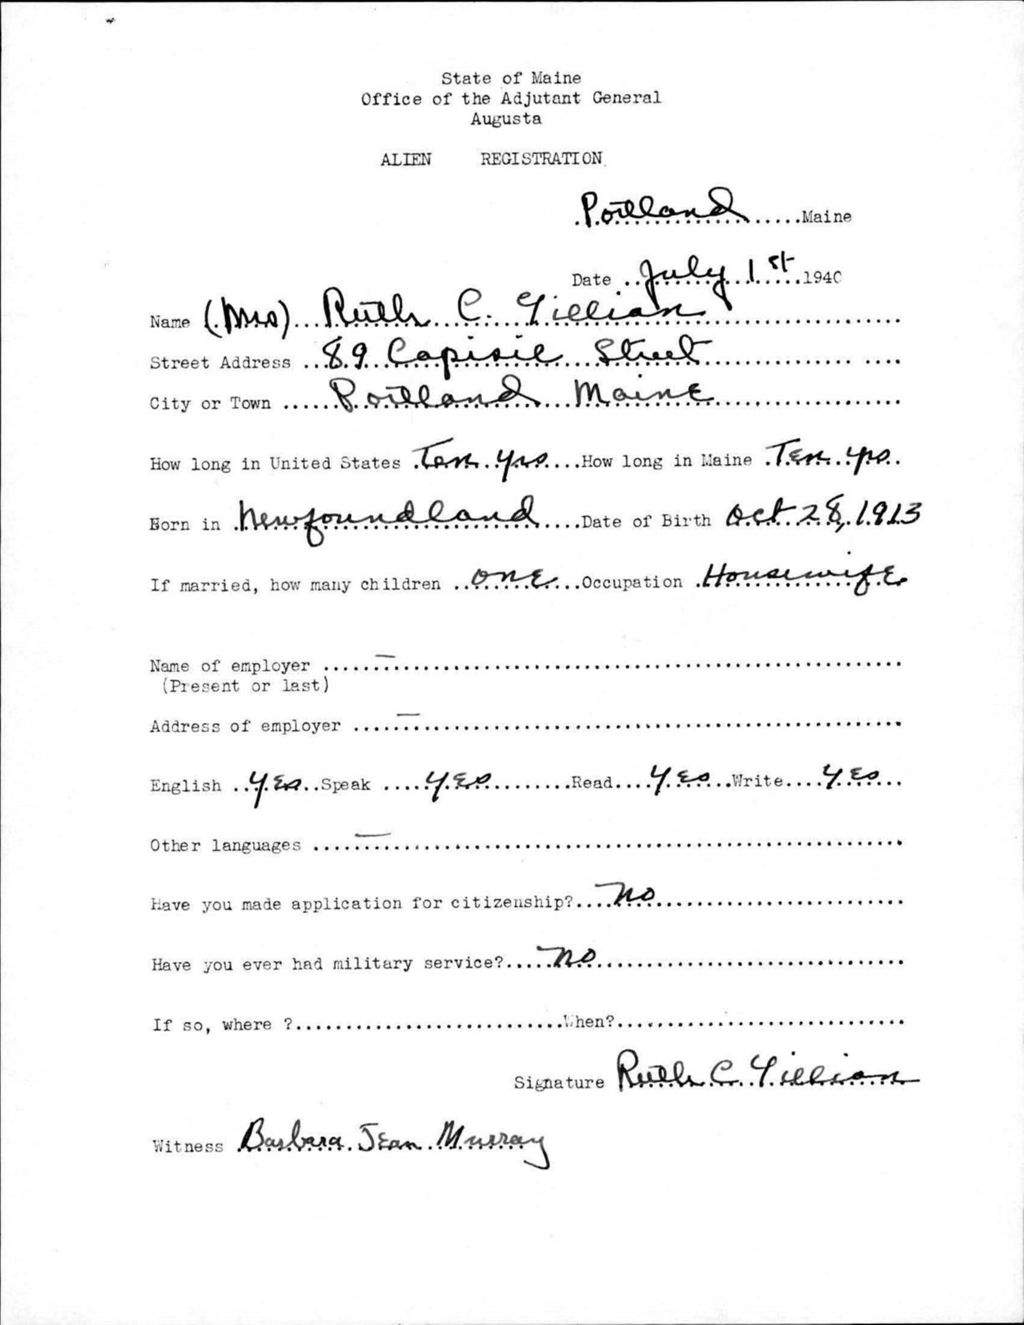 State of Maine
Office of the Adjutant General
Augusta
ALIEN REGISTRATION
Portland Maine
Date July 1st 1940
Name (Mrs) Ruth C. Gillian
Street Address 89 Capisic Street
City or Town Portland Maine
How long in United States Ten yrs How long in Maine Ten yrs
Born in Newfoundland Date of Birth Oct 28, 1913
If married, how many children one Occupation Housewife
Name of employer —
(Present or last)
Address of employer —
English Yes Speak Yes Read Yes Write Yes
Other languages —
Have you made application for citizenship? No
Have you ever had military service? No
If so, where ? When?
Signature Ruth C. Gillian
Witness Barbara Jean Murray